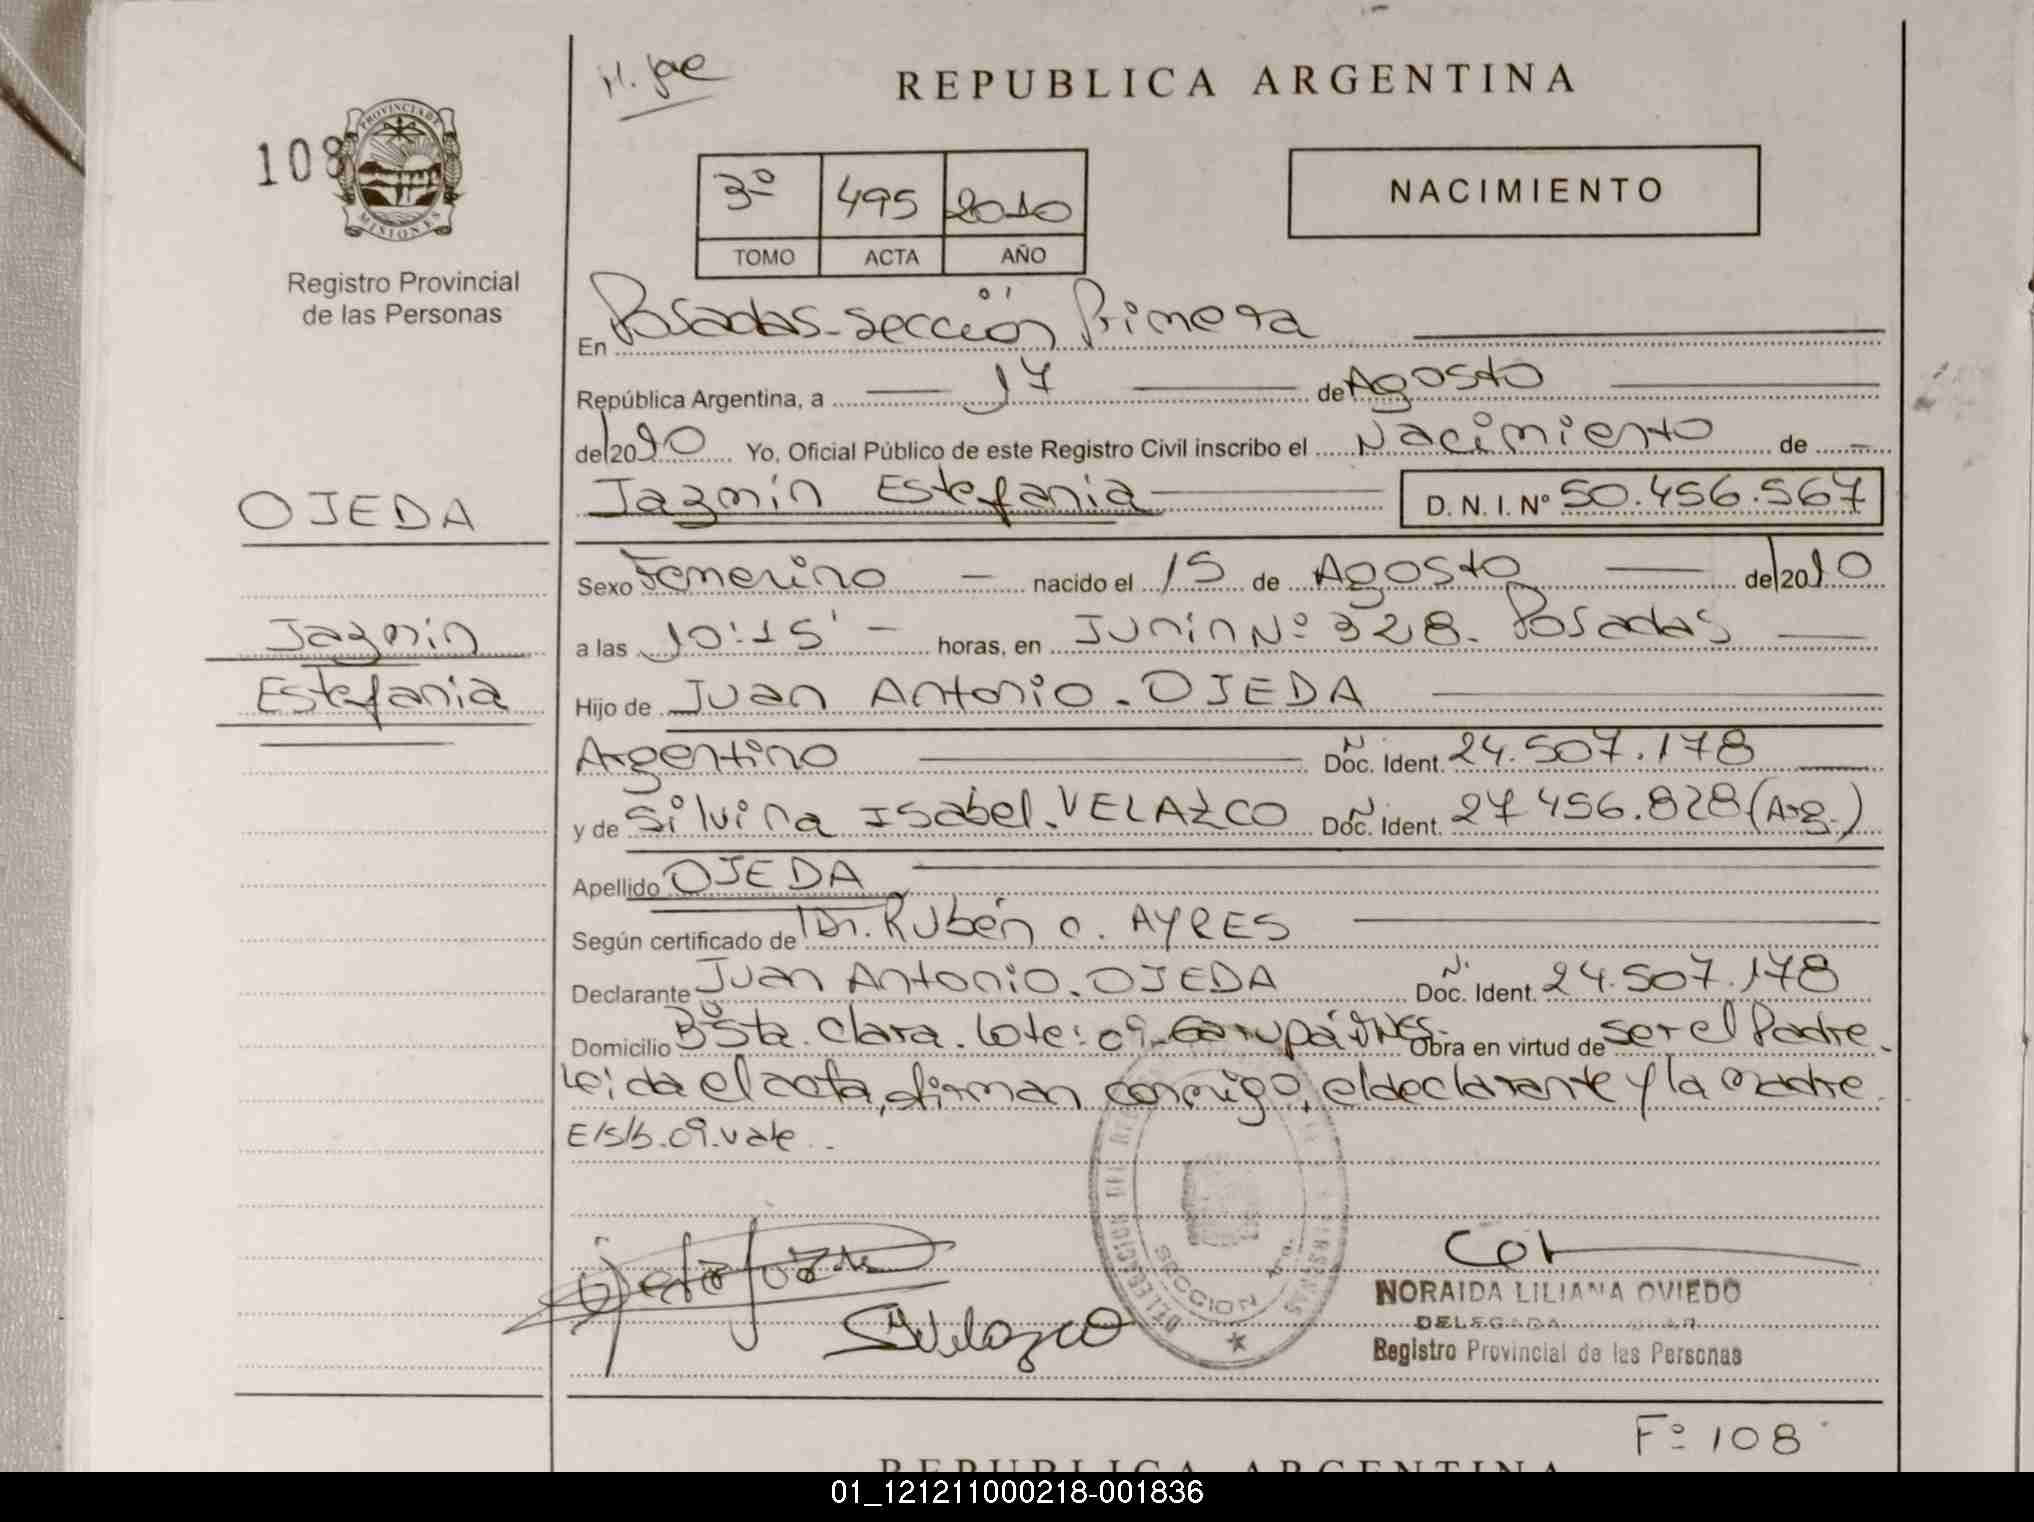 H. Jge
REPUBLICA ARGENTINA
108
PROVINCIA DE MISIONES
3º 495 2010
TOMO ACTA AÑO
NACIMIENTO
Registro Provincial
de las Personas
En Posadas-sección Primera
República Argentina, a 17 de Agosto
de 2010 Yo, Oficial Público de este Registro Civil inscribo el Nacimiento de
OJEDA
Jazmín Estefania D. N. I. Nº 50.456.567
Sexo Femenino nacido el 15 de Agosto de 2010
Jazmin
a las 10:15' horas, en Junín Nº 328. Posadas
Estefania
Hijo de Juan Antonio. OJEDA
Argentino Doc. Ident. 24.507.178
y de Silvina Isabel. VELAZCO Doc. Ident. 27456.828 (Arg.)
Apellido OJEDA
Según certificado de Dr. Rubén O. AYRES
Declarante Juan Antonio. OJEDA Doc. Ident. 24.507.178
Domicilio Bº Sta. Clara. Lote: 09. Garupá Obra en virtud de ser el Padre.
Leida el acta, firman conmigo, el declarante y la madre.
E/s/b. 09. vale.
DELEGACION DEL
SECCION
SVelazco
NORAIDA LILIANA OVIEDO
DELEGADA
Registro Provincial de las Personas
Fº 108
REPUBLICA ARGENTINA
01_121211000218-001836